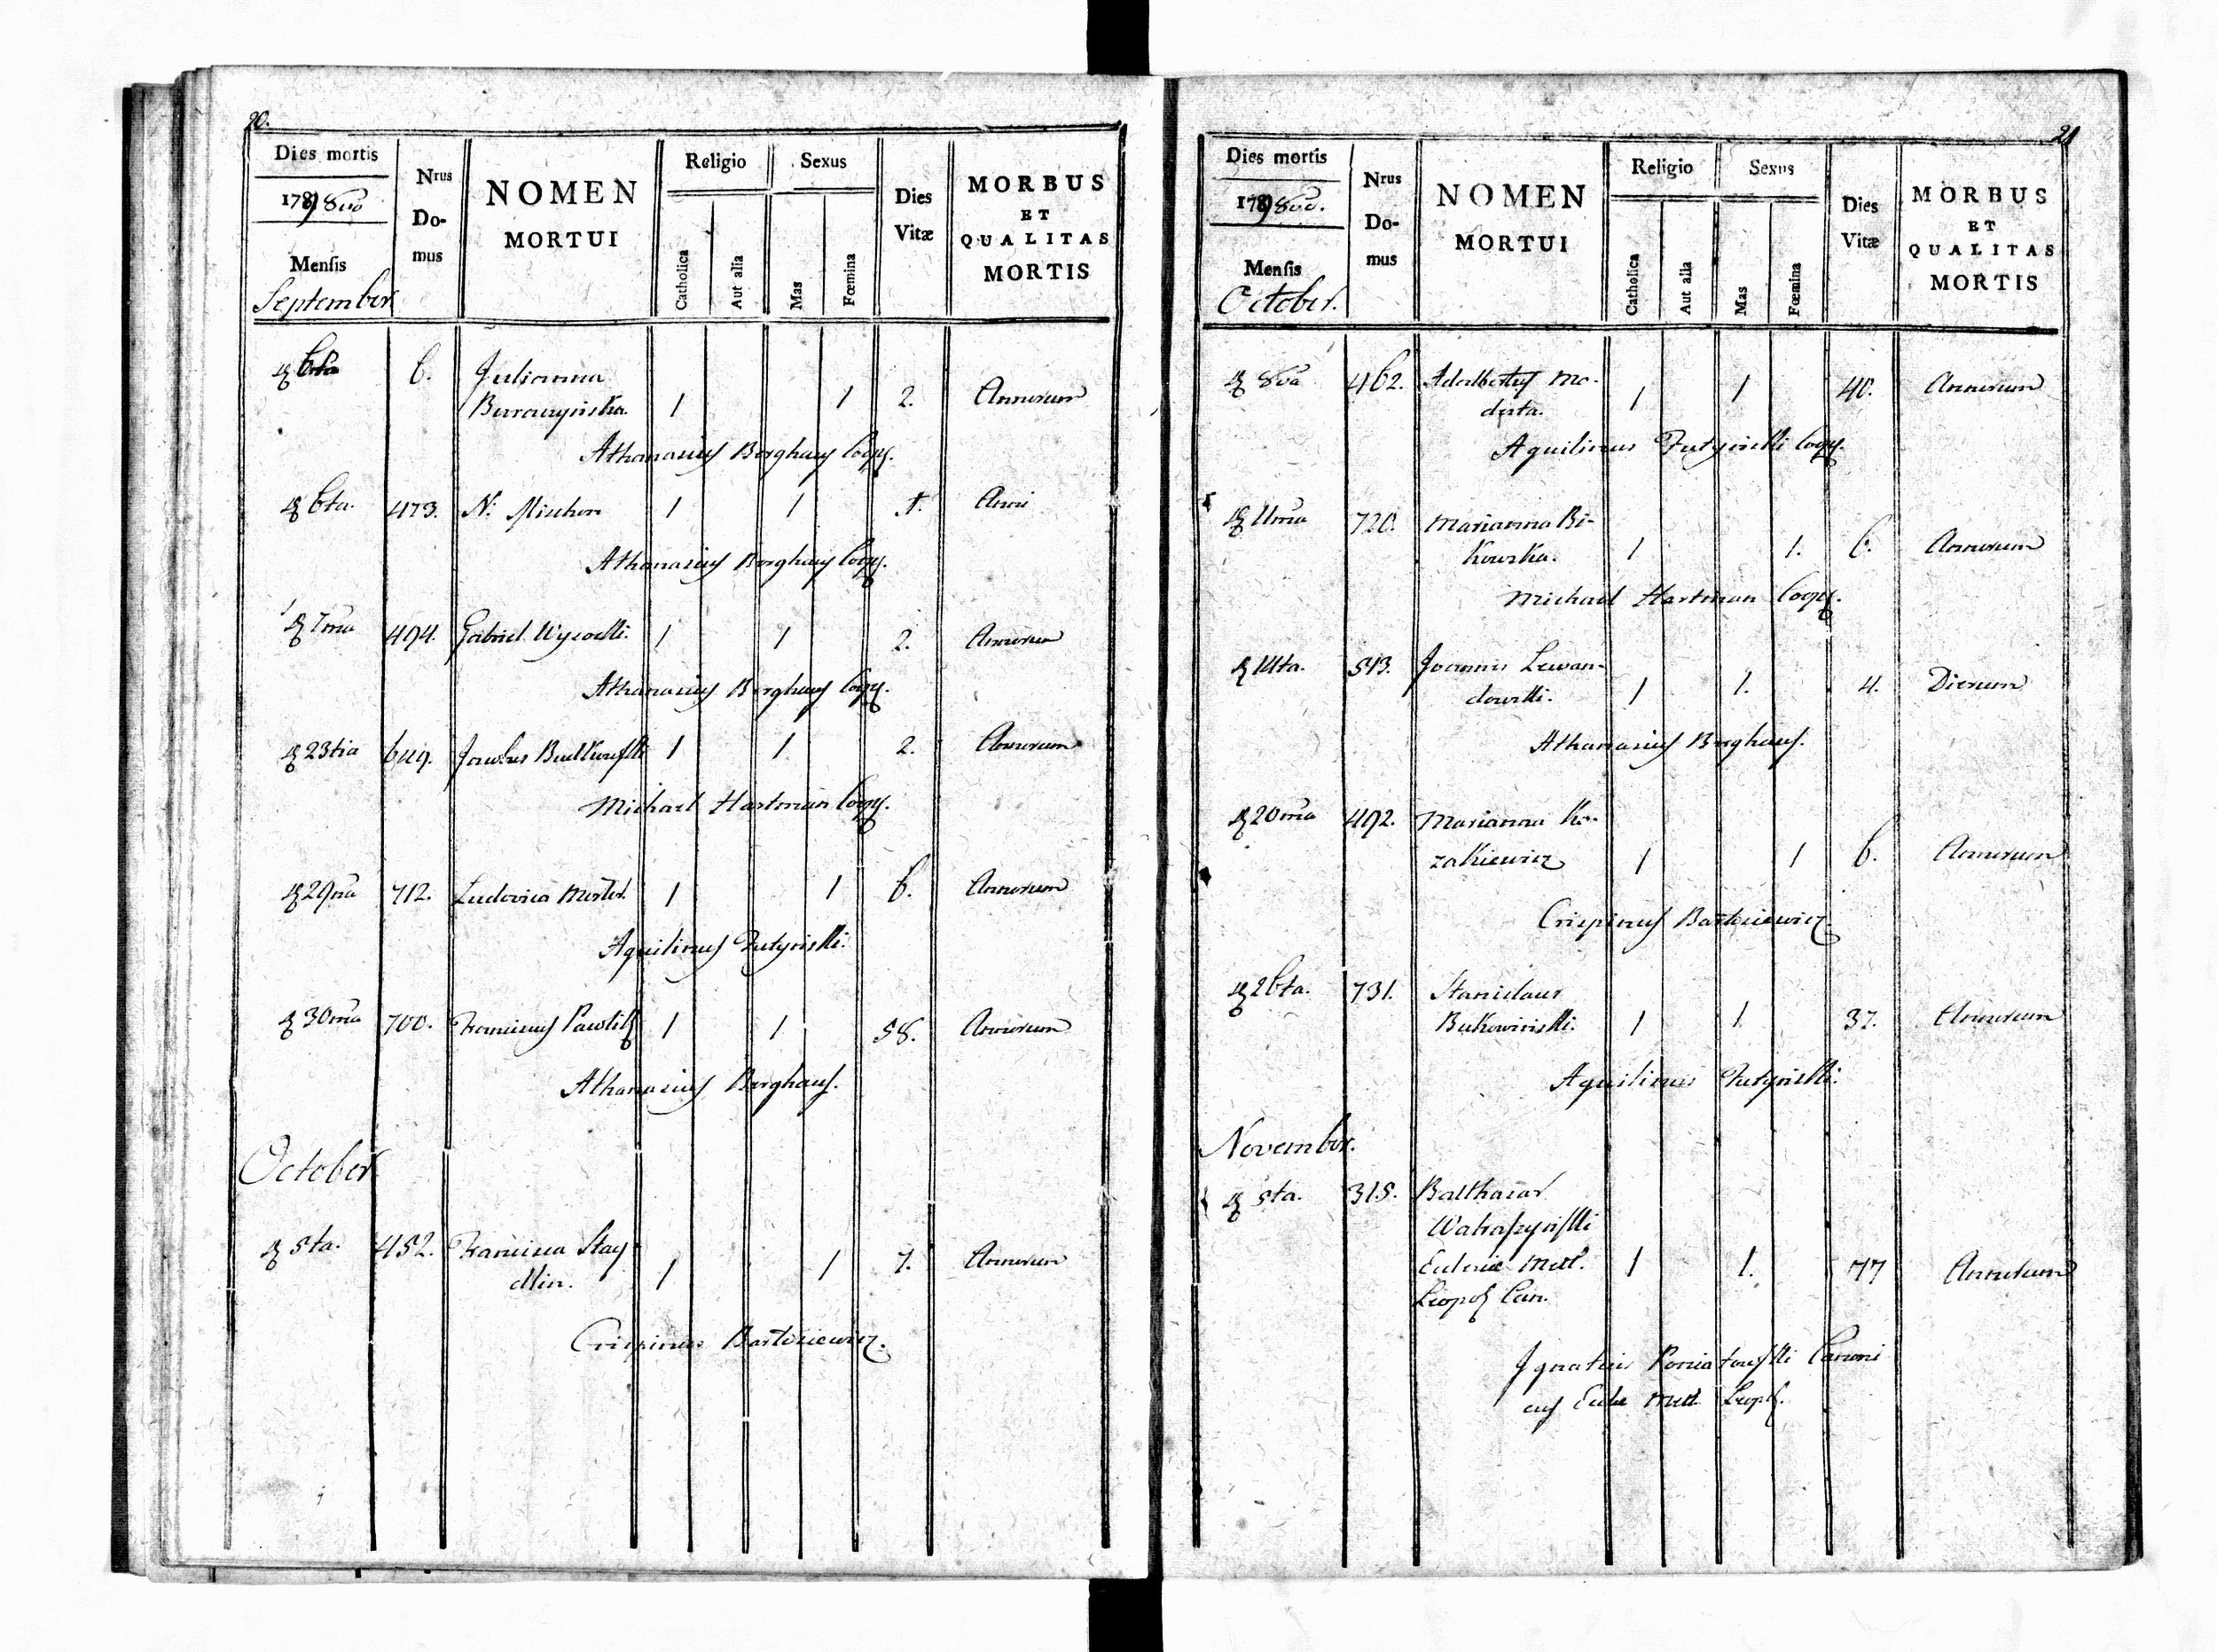 20.
Dies mortis
1780 800
Mensis
September
Nrus
Do-
mus
NOMEN
MORTUI
Religio
Catholica
Aut alia
Sexus
Mas
Fœmina
Dies
Vitæ
MORBUS
ET
QUALITAS
MORTIS
6ta 6. Julianna
1 1 2. Annorum
Athanasius Berghaus Coop.
6ta. 473. N. 1 1 1. Anni
Athanasius Berghaus Coop.
7ma 494. Gabriel Wysocki. 1 1 2. Annorum
Athanasius Berghaus Coop.
23tia 649. Jacobus Butkowski 1 1 2. Annorum
Michael Hartman Coop.
29na 712. Ludovica 1 1 6. Annorum
Aquilinus Futyński.
30ma 700. Franciscus 1 1 58. Annorum
Athanasius Berghaus.
October
5ta. 452. Francisca Stay-
dlin. 1 1 7. Annorum
Crispinus Bartkiewicz.
21
Dies mortis
1780 800.
Mensis
October.
Nrus
Do-
mus
NOMEN
MORTUI
Religio
Catholica
Aut alia
Sexus
Mas
Fœmina
Dies
Vitæ
MORBUS
ET
QUALITAS
MORTIS
8va 462. Adalbertus
1 1 40. Annorum
Aquilinus Futyński Coop.
11ma 720. Marianna Bi-
kowska. 1 1. 6. Annorum
Michael Hartman Coop.
14ta. 513. Joannes Lewan-
dowski. 1 1. 4. Dierum
Athanasius Berghaus.
20ma 492. Marianna Ko-
zakiewicz 1 1 6. Annorum
Crispinus Bartkiewicz.
26ta. 731. Stanislaus
Bukowiński. 1 1 37. Annorum
Aquilinus Futyński.
November.
5ta. 315. Balthasar

Eclesiæ Met. 1 1. 77 Annorum
Leopol Can.
Ignatius Poniatowski Canoni
cus Eccle Met Leopol.